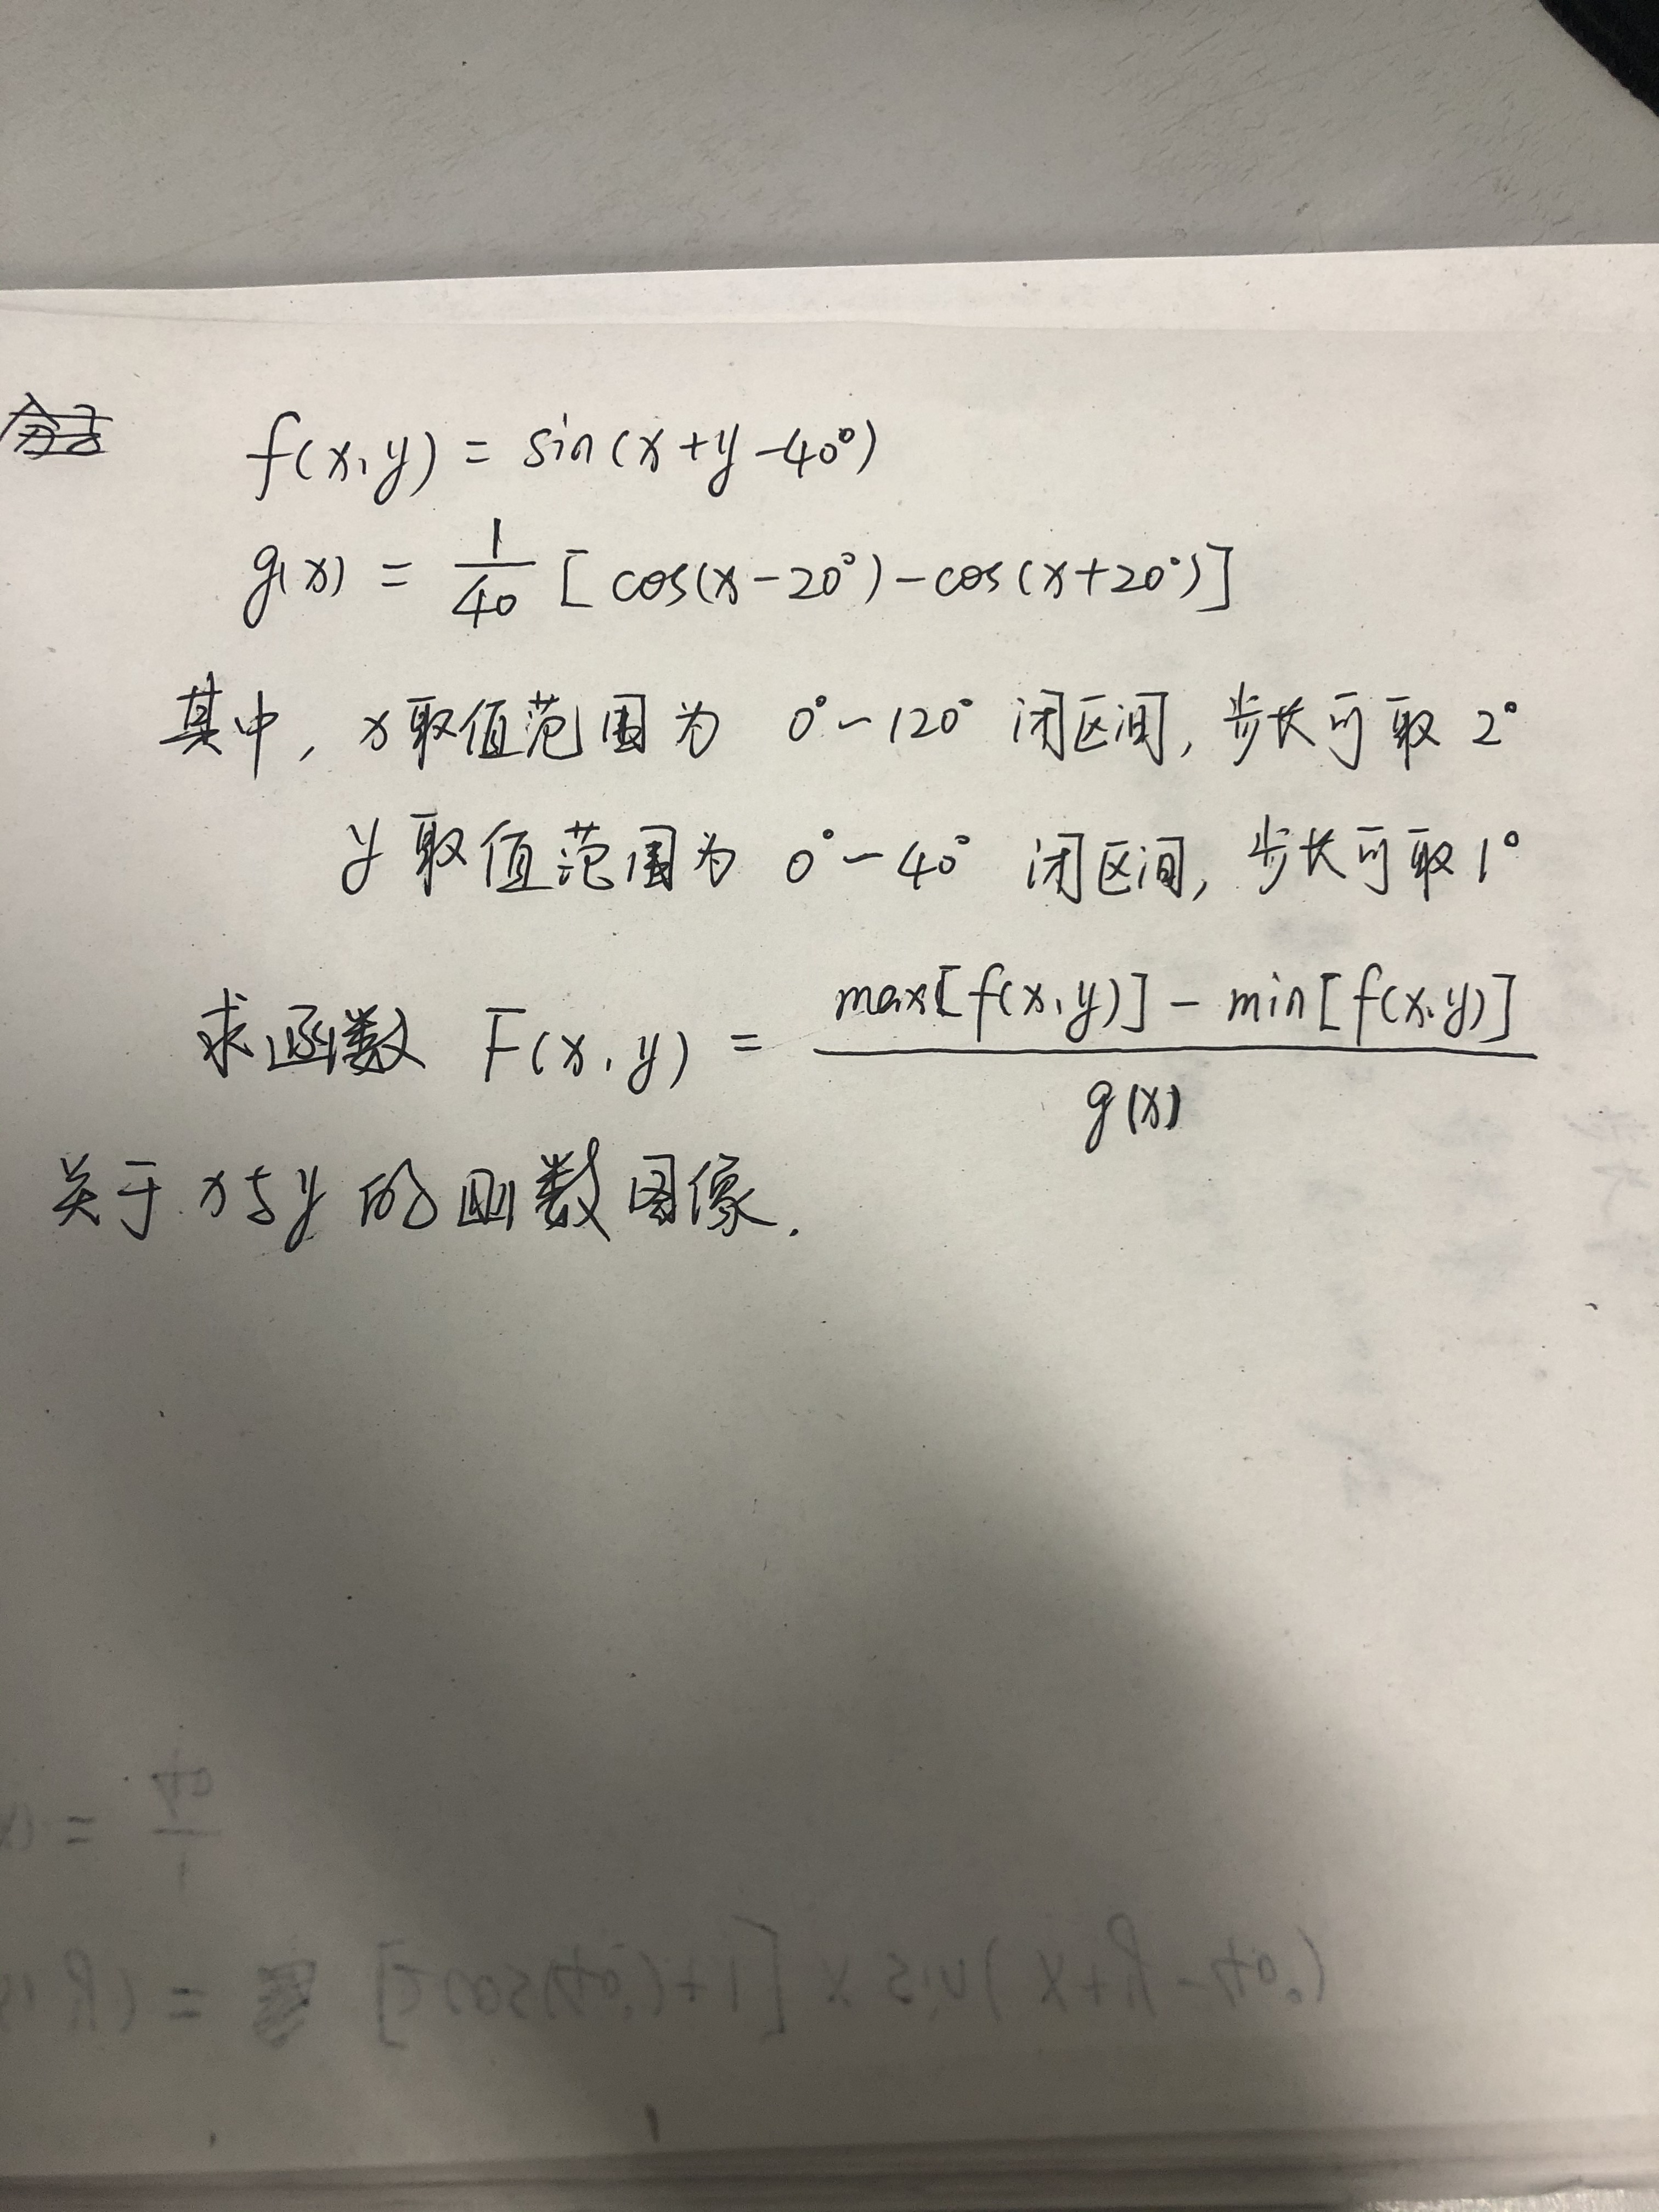 f(x,y) = sin(x+y-40°)
g(x) = 1/40 [cos(x-20°)-cos(x+20°)]
其中, x取值范围为 0°~120° 闭区间, 步长可取 2°
y取值范围为 0°~40° 闭区间, 步长可取1°
求函数 F(x,y) = max[f(x,y)] - min[f(x,y)] / g(x)
关于x与y的函数图像.